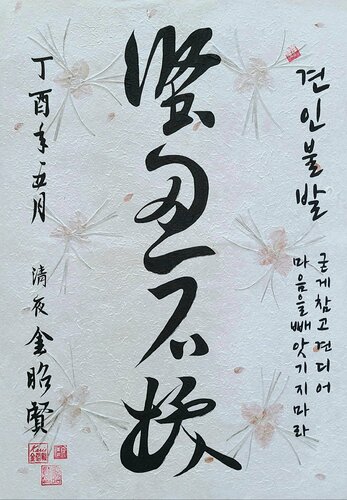 견인불발
굳게 참고 견디어
마음을 빼앗기지 마라
堅忍不拔
丁酉年 五月
清夜 金昭賢